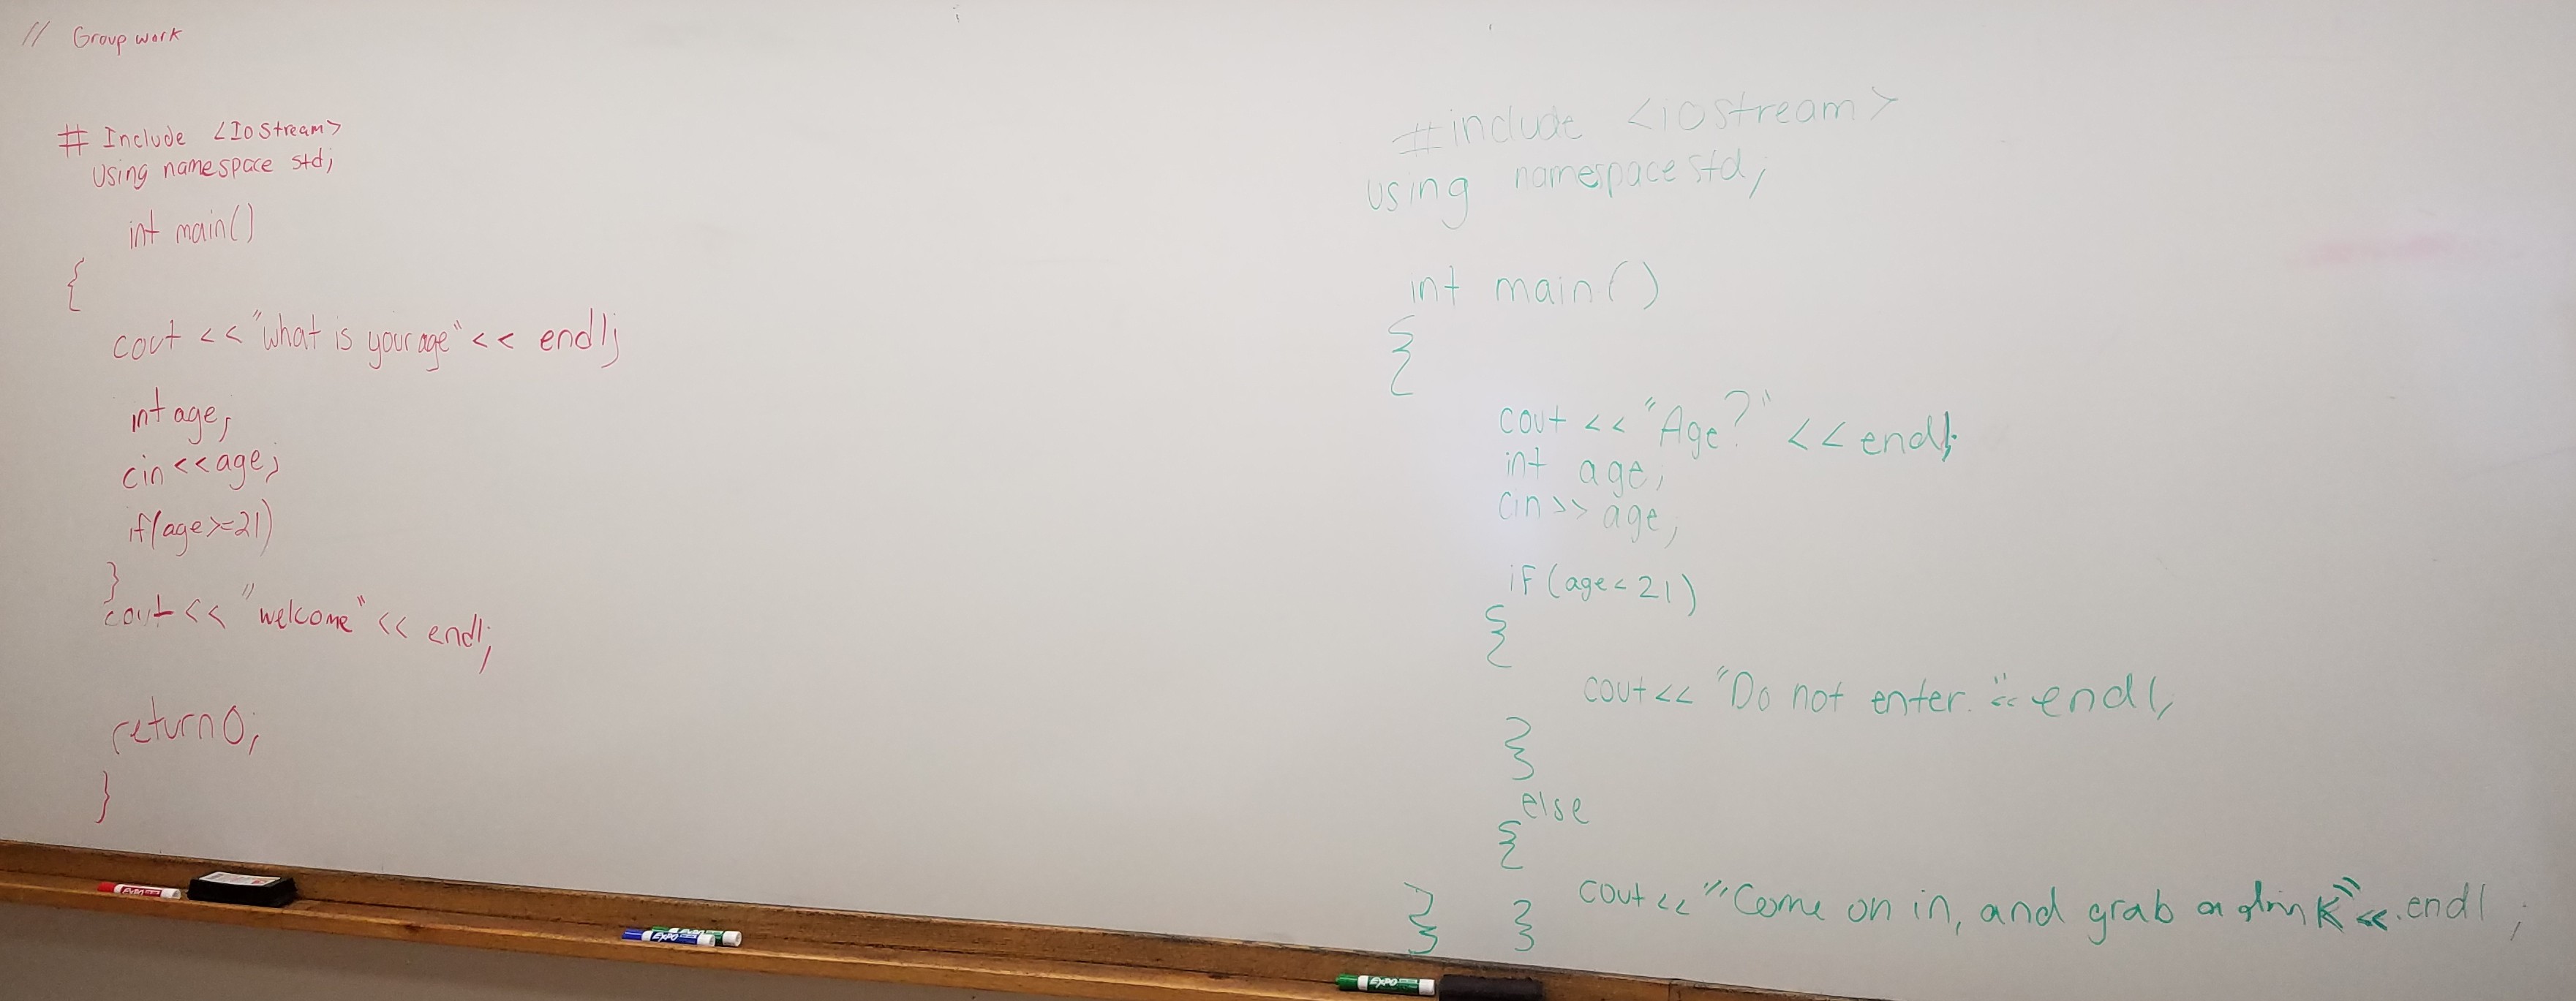 // Group work
# Include <IoStream>
Using namespace std;
int main()
{
cout << "what is your age" << endl;
int age;
cin << age;
if(age>=21)
}
cout << "welcome" << endl;
return 0;
}
#include <iostream>
using namespace std;
int main()
{
cout << "Age?" << endl;
int age;
cin >> age;
if (age < 21)
{
cout << "Do not enter." << endl;
}
else
{
cout << "Come on in, and grab a drink" << endl;
} }
EXPO
EXPO
EXPO